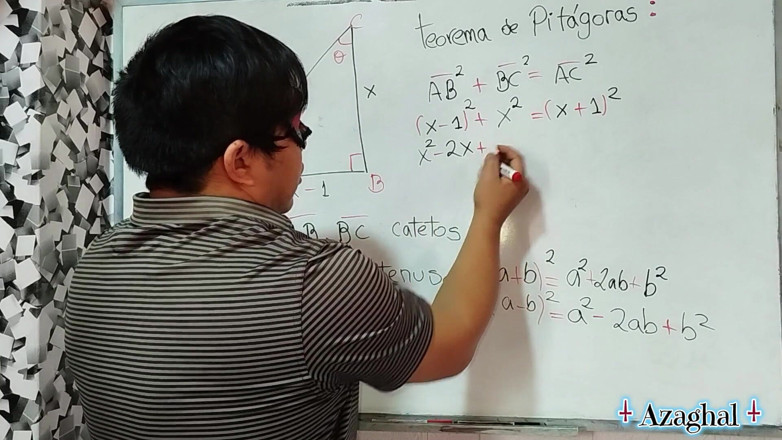 teorema de Pitágoras:
C
θ
x
AB² + BC² = AC²
(x-1)² + x² = (x+1)²
x²-2x+
x-1
B
B BC catetos
tenus
a+b)² = a²+2ab+b²
a-b)² = a²-2ab+b²
Azaghal